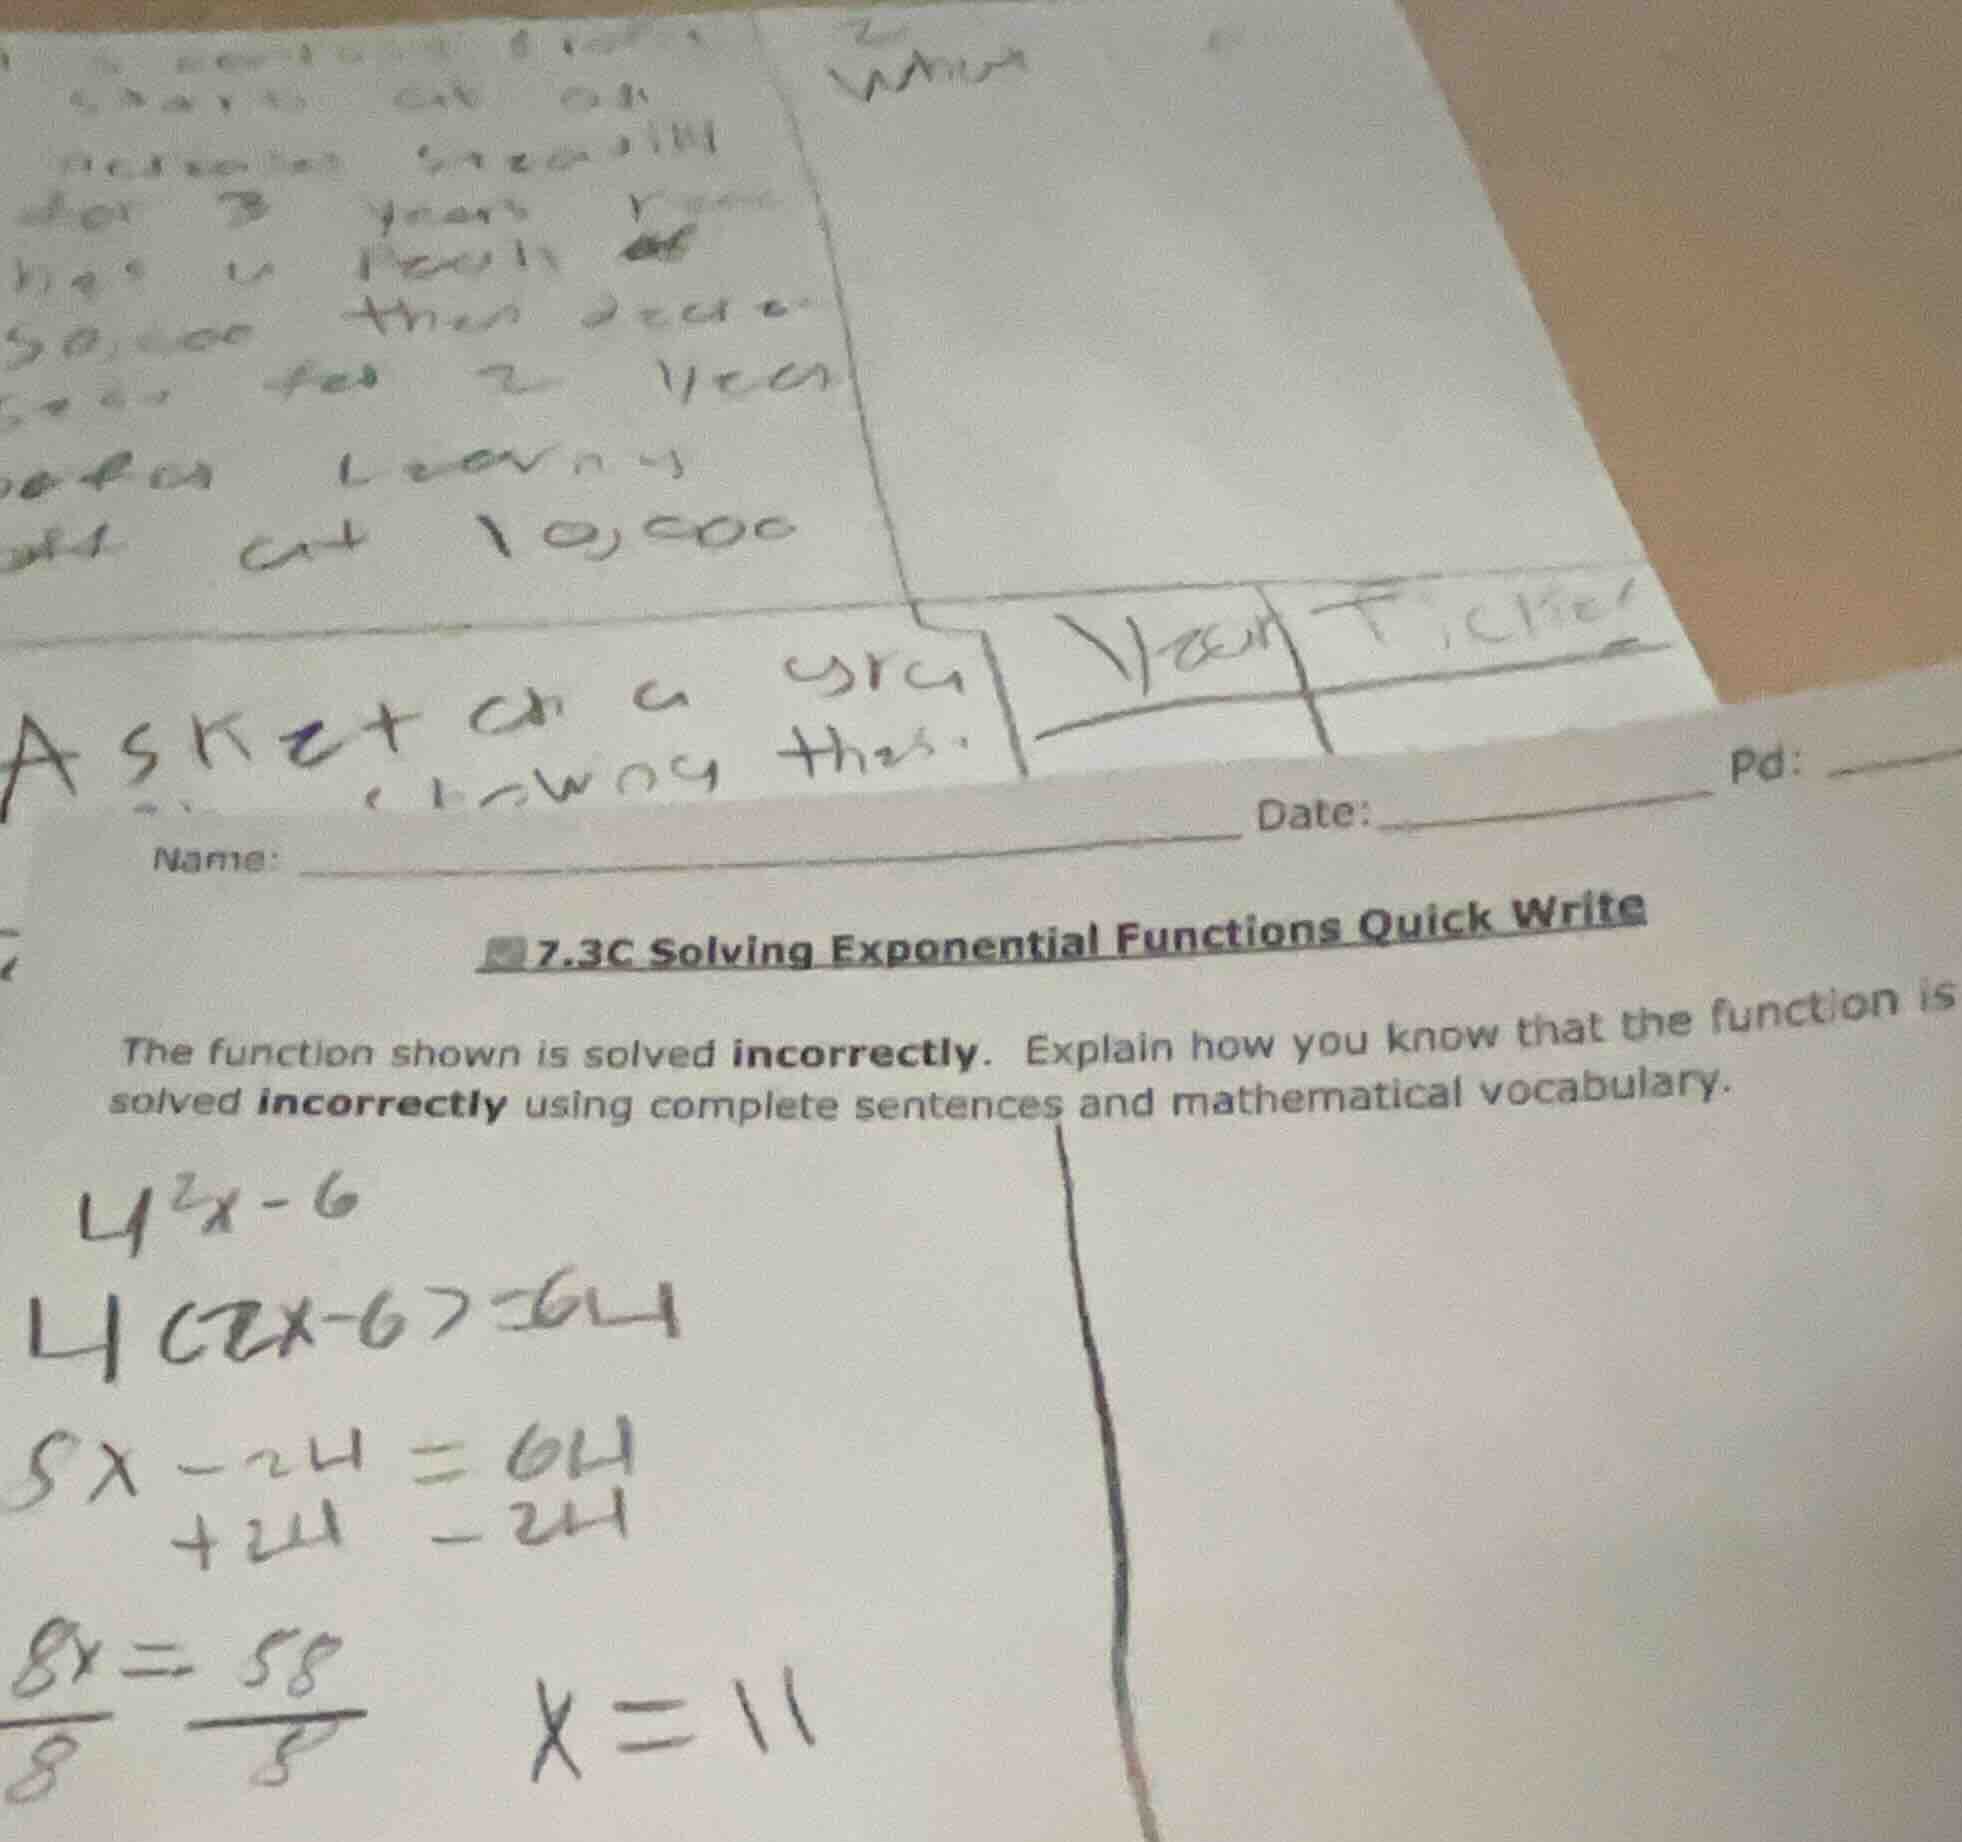 Where
starts at an
steadily
for 3 years
has a Peak of
50,000 then decre
for 2 Year
at 10,000
A Sket ch a gra
showing this.
Year Ticket
Name: Date: Pd:
7.3C Solving Exponential Functions Quick Write
The function shown is solved incorrectly. Explain how you know that the function is
solved incorrectly using complete sentences and mathematical vocabulary.
4^2x-6
4(2x-6)=64
8x-24=64
+24 -24
8x= 58
8 8
x=11